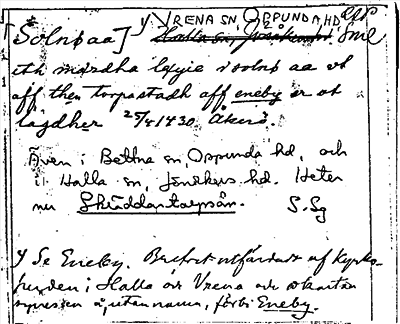 y VRENA SN, OPPUNDA HD
Solnþaa] Halla sn, Jönåkers hd. Sml
eth mærdha læggie i solnþ aa vt
aff then torpastadh aff eneby ær vt
lagdher 25/4 1430 Åkerö.
Även i Bettna sn, Oppunda hd, och
i Halla sn, Jönåkers hd. Heter
nu Skräddartorpsån. S. Sg
y Se Eneby. Brefvet utfärdat af Kyrko-
herden i Halla och Vrena och
utan namn, förbi Eneby.